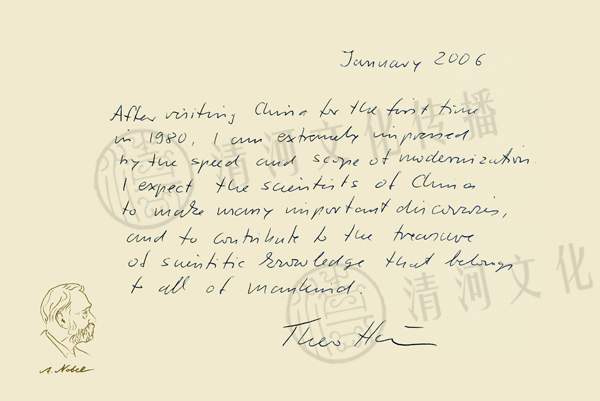 January 2006
After visiting China for the first time
in 1980, I am extremely impressed
by the speed and scope of modernization.
I expect the scientists of China
to make many important discoveries,
and to contribute to the treasure
of scientific knowledge that belongs
to all of mankind.
Theo
A. Nobel
清河文化传播
清河文化